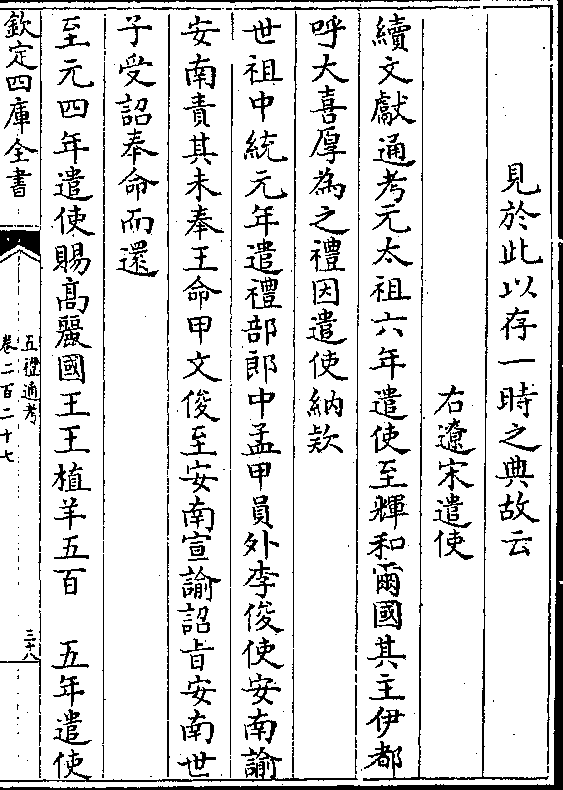 見於此以存一時之典故云
右遼宋遣使
續文獻通考元太祖六年遣使至輝和爾國其主伊都
呼大喜厚為之禮因遣使納欵
世祖中統元年遣禮部郎中孟甲員外李俊使安南諭
安南責其未奉王命甲文俊至安南宣諭詔旨安南世
子受詔奉命而還
至元四年遣使賜髙麗國王王植羊五百　五年遣使
欽定四庫全書
五禮通考
卷二百二十七
三十八